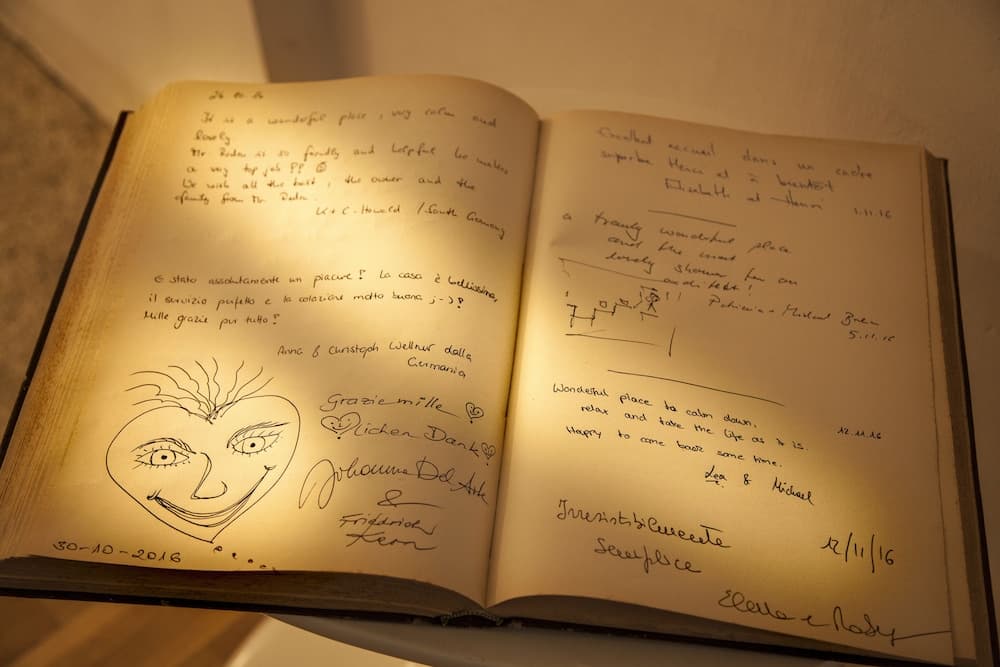 It is a wonderful place, very calm and
lovely
Mr is so and helpful he makes
a very top job !!
We wish all the best, the owner and the
family from Mr.
K + C. Howald / South Germany
È stato assolutamente un piacere! La casa è bellissima,
il servizio perfetto e la colazione molto buona ;-)!
Mille grazie per tutto!
Anna & Christoph Wellner dalla
Germania
Grazie mille
lichen Dank
Johanna Del Arte
&
Friedrich
Kern
30-10-2016
Excellent accueil dans un cadre
superbe Merci et à bientôt
Elisabeth et Henri 1.11.16
a truly wonderful place
and the most
lovely shower for an
architekt!
Patricia + Michael
5.11.16
Wonderful place to calm down,
relax and take the life as it is. 12.11.16
Happy to come back some time.
Lea & Michael
Irresistibilmente 12/11/16
Semplice
Elena e Rody